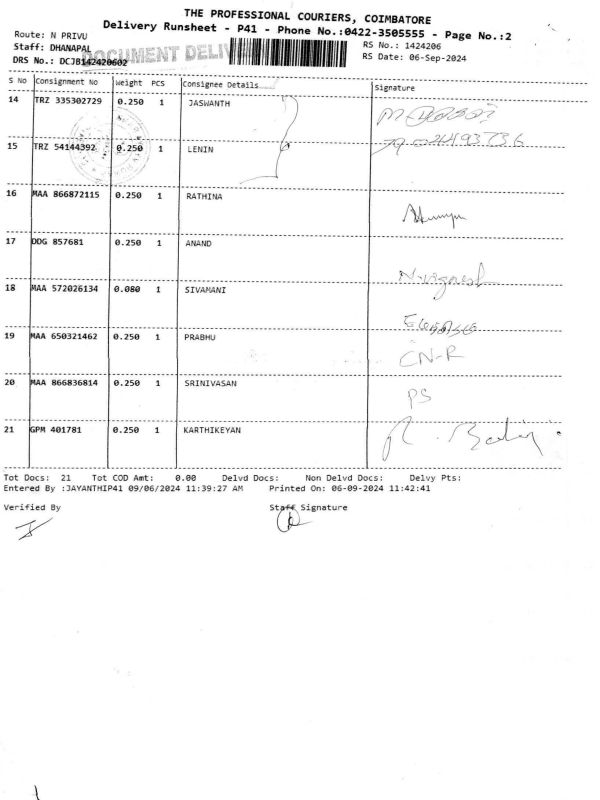 THE PROFESSIONAL COURIERS, COIMBATORE
Delivery Runsheet - P41 - Phone No.:0422-3505555 - Page No.:2
Route: N PRIVU
RS No.: 1424206
Staff: DHANAPAL
DOCUMENT DELIV
RS Date: 06-Sep-2024
DRS No.: DCJB142420602
S No Consignment No Weight PCS Consignee Details Signature
14 TRZ 335302729 0.250 1 JASWANTH
15 TRZ 54144392 0.250 1 LENIN
16 MAA 866872115 0.250 1 RATHINA
17 DDG 857681 0.250 1 ANAND
18 MAA 572026134 0.080 1 SIVAMANI
19 MAA 650321462 0.250 1 PRABHU
CN-R
20 MAA 866836814 0.250 1 SRINIVASAN
PS
21 GPM 401781 0.250 1 KARTHIKEYAN
Tot Docs: 21 Tot COD Amt: 0.00 Delvd Docs: Non Delvd Docs: Delvy Pts:
Entered By :JAYANTHIP41 09/06/2024 11:39:27 AM Printed On: 06-09-2024 11:42:41
Verified By Staff Signature